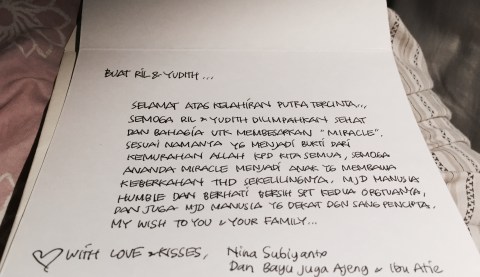 BUAT RIL & YUDITH...
SELAMAT ATAS KELAHIRAN PUTRA TERCINTA...
SEMOGA RIL & YUDITH DILIMPAHKAN SEHAT
DAN BAHAGIA UTK MEMBESARKAN "MIRACLE".
SESUAI NAMANYA YG MENJADI BUKTI DARI
KEMURAHAN ALLAH KPD KITA SEMUA, SEMOGA
ANANDA MIRACLE MENJADI ANAK YG MEMBAWA
KEBERKAHAN THD SEKELILINGNYA. MJD MANUSIA
HUMBLE DAN BERHATI BERSIH SPT KEDUA ORGTUANYA,
DAN JUGA MJD MANUSIA YG DEKAT DGN SANG PENCIPTA.
MY WISH TO YOU & YOUR FAMILY...
WITH LOVE & KISSES, Nina Subiyanto
Dan Bayu juga Ajeng & Ibu Atie